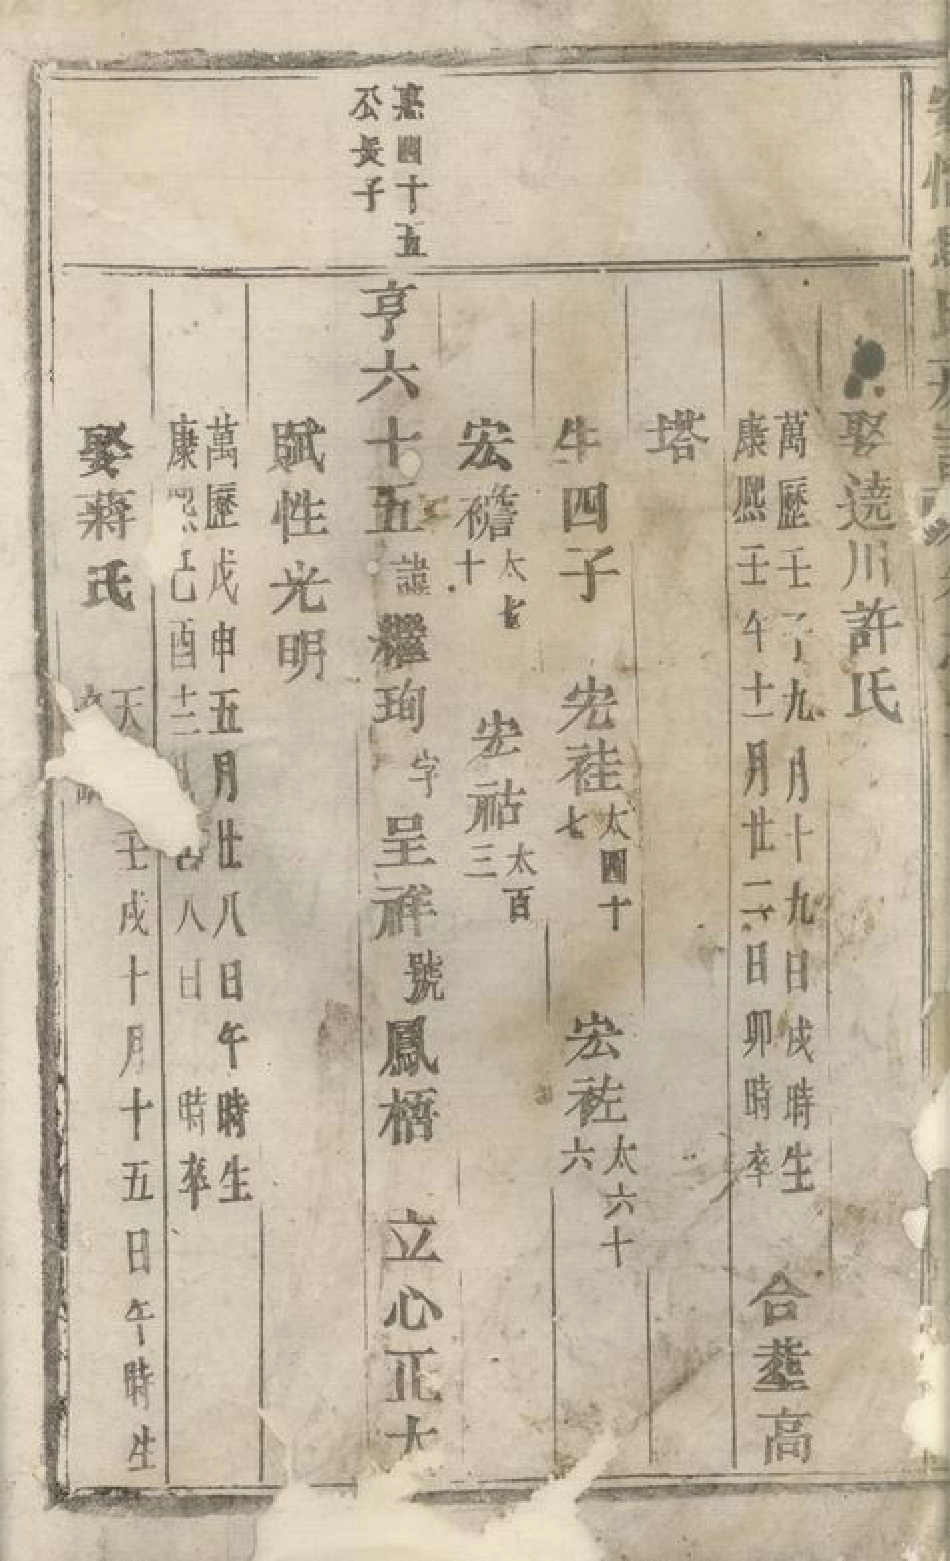 娶遶川許氏
萬歷壬子九月十九日戌時生
康熙壬午十一月廿二日卯時卒
合塟高
塔
生四子 宏祛太四十七 宏祐太六十六
宏襜太七十 宏祜太百三
四十五
公長子
亨六十五諱繼珣字呈祥號鳳梧 立心正大
賦性光明
萬歷戊申五月廿八日午時生
康熙己酉十二月 八日 時卒
娶蔣氏
天 壬戌十月十五日午時生